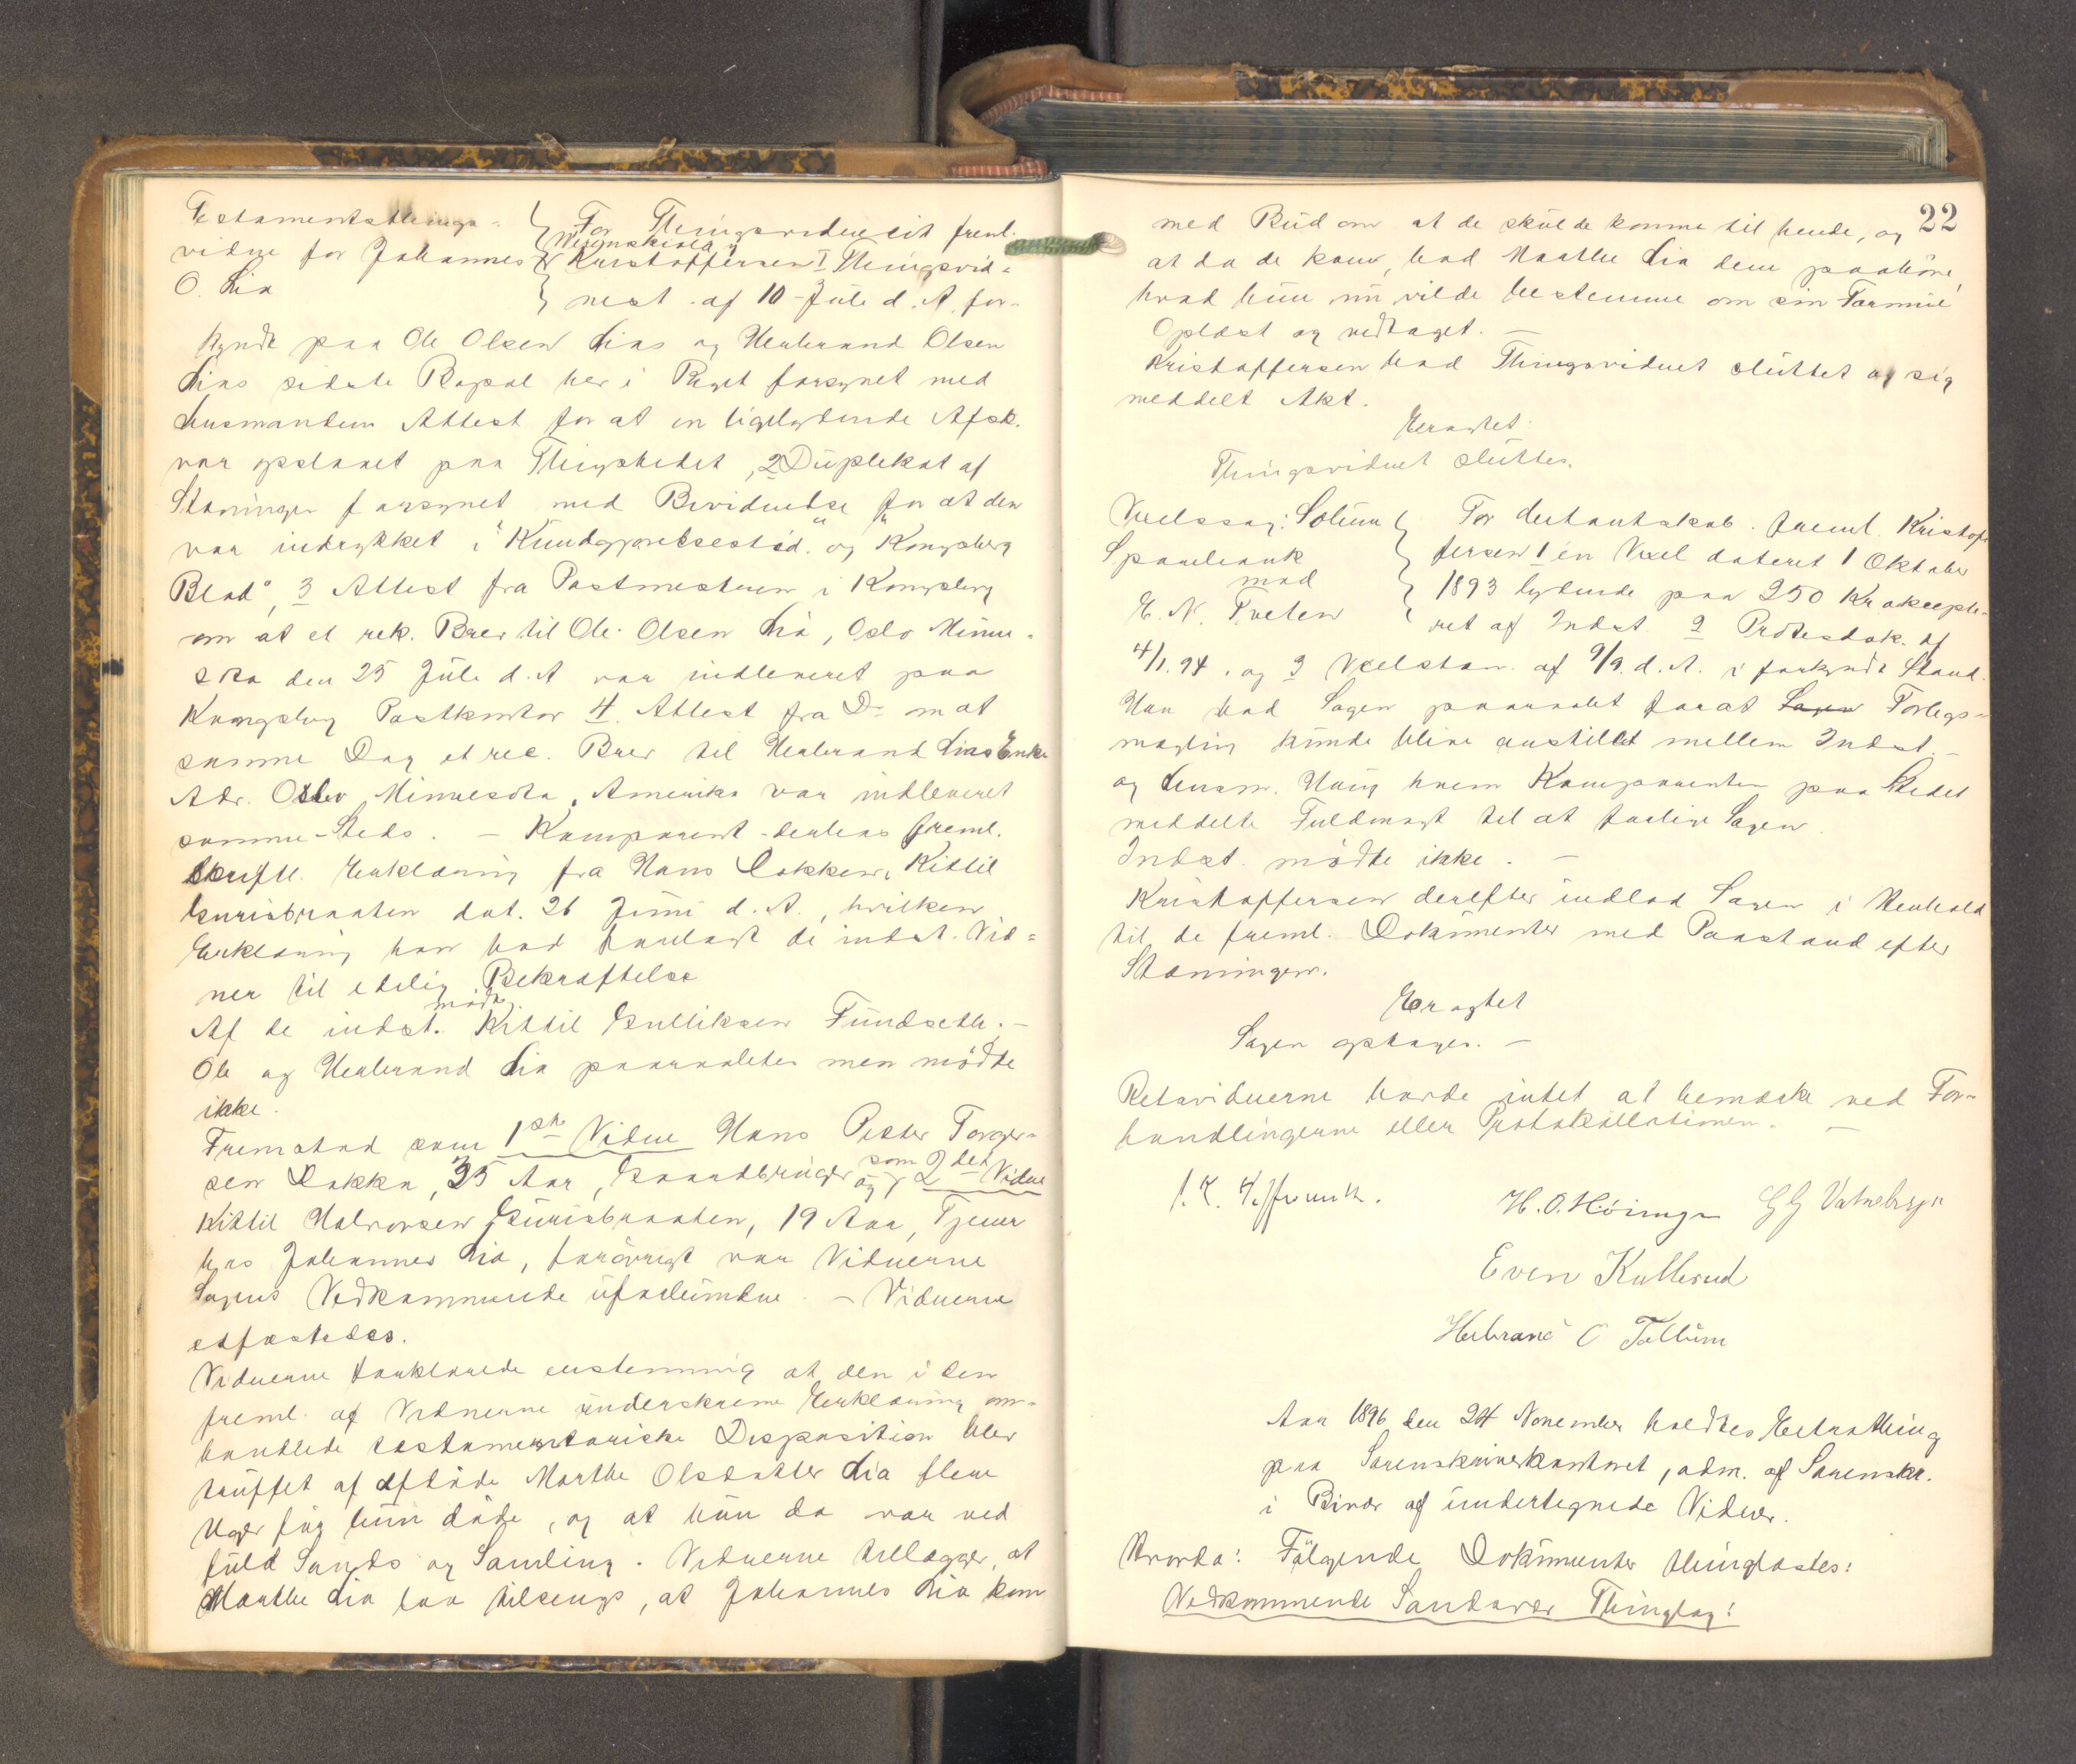 Testamentsthings-
vidne for Johannes
O. Lia
For Thingsvidnesit freml.
Kristoffersen 1 Thingsvid-
nest. af 10 Juli d. A. for-
kyndt paa Ole Olsen Lias og Herbrand Olsen
Lias sidste Bopæl her i Riget forsynet med
Lensmandens Attest for at en ligelydende Afsk.
var opslaaet paa Thingstedet, 2 Duplikat af
Stævningen forsynet med Bevidnelse for at den
var indrykket i "Kundgjørelsestid." og "Kongsberg
Blad", 3 Attest fra Postmesteren i Kongsberg
om at et rek. Brev til Ole Olsen Lia, Oslo Minne-
sota den 25 Juli d. A var indleveret paa
Kongsberg Postkontor 4. Attest fra Do om at
samme Dag et rec. Brev til Herbrand Lias Enke
Adr. Oslo Minnesota, Amerika var indleveret
samme-Steds. – Komparent-derhos freml.
skriftl. Erklæring fra Hans Lokken, Kittil
Gurisbraaten dat. 26 Juni d. A., hvilken
Erklæring han bad forelagt de indst. Vid-
ner til edelig Bekræftelse
Af de indst. mødte Kittil Gulliksen Fundseth. –
Ole og Herbrand Lia paaraabtes men mødte
ikke.
Fremstod som 1ste Vidne Hans Peter Torger-
sen Lokka, 35 Aar, Gaardbruger og som 2det Vidne
Kittil Halvorsen Gurisbraaten, 19 Aar, Tjener
hos Johannes Lia, forøvrigt var Vidnerne
Sagens Vedkommende uforbundne. – Vidnerne
edfæstedes.
Vidnerne forklarede enstemmig at den i den
freml. af Vidnerne underskrevne Erklæring om-
handlede testamentariske Disposition blev
truffet af afdøde Marthe Olsdatter Lia flere
Uger før hun døde, og at hun da var ved
fuld Sands og Samling. Vidnerne tillægger, at
Marthe Lia laa tilsengs, at Johannes Lia kom
22
med Bud om at de skulde komme til hende, og
at da de kom, bad Marthe Lia dem paahøre
hvad hun nu vilde bestemme om sin Formue
Oplæst og vedtaget. –
Kristoffersen bad Thingsvidnet sluttet og sig
meddelt Akt.
Eragtet:
Thingsvidnet sluttes.
Vexelssag: Solum
Sparebank
mod
E. N. Tveten
For Citantskab. freml. Kristof-
fersen 1 en Vexel dateret 1 Oktober
1893 lydende paa 250 Kr aksepte-
ret af Indst. 2 Protestdok. af
4/1.94. og 3 Vexelstævn. af 9/9. d. A. i forkyndt Stand.
Han bad Sagen paaraabt forat Sagen Forlegs-
mægling kunde blive anstillet mellem Indst. –
og Lensm. Høeg hvem Komparenten paa Stedet
meddelte Fuldmagt til at forlige Sagen.
Indst. mødte ikke. –
Kristoffersen derefter indlod Sagen i Henhold
til de freml. Dokumenter med Paastand efter
Stævningen.
Eragtet
Sagen optages. –
Retsvidnerne havde intet at bemærke ved For-
handlingerne eller Protokollationen. –
H. O. Høimyr
Even Kullerud
Herbrand O Tollum
Aar 1896 den 24 November holdtes Extrathing
paa Sorenskriverkontoret, adm. af Sorenskr.
i Bivær af undertegnede Vidner.
Hvorda: Følgende Dokumenter thinglæstes:
Vedkommende Sandsvær Thinglag: